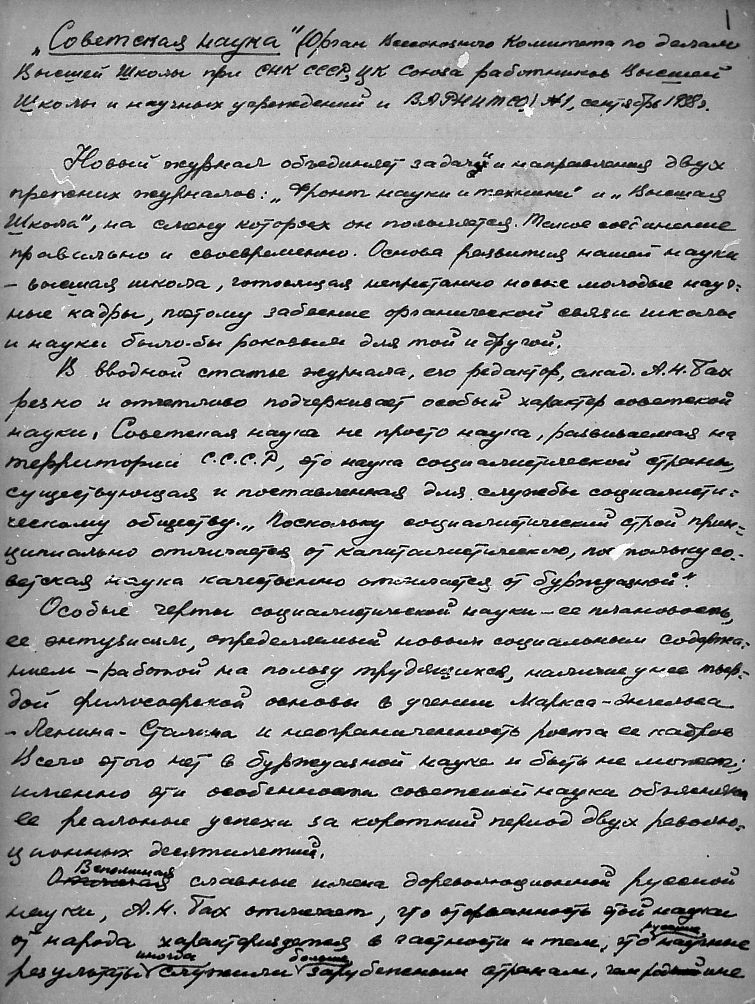 1
„Советская наука" (Орган Всесоюзного Комитета по делам
Высшей Школы при СНК СССР, ЦК Союза работников Высшей
Школы и научных учреждений и ВАРНИТСО) №1, сентябрь 1938г.
Новый журнал объединяет задачи и направления двух
прежних журналов: „Фронт науки и техники" и „Высшая
Школа", на смену которых он появляется. Такое соединение
правильно и своевременно. Основа развития нашей науки
– высшая школа, готовящая непрестанно новые молодые науч-
ные кадры, поэтому забвение органической связи школы
и науки было-бы роковым для той и другой.
В вводной статье журнала, его редактор, акад. А.Н. Бах
резко и отчетливо подчеркивает особый характер советской
науки. Советская наука не просто наука, развиваемая на
территории С.С.С.Р, это наука социалистической страны,
существующая и поставленная для службы социалисти-
ческому обществу. „Поскольку социалистический строй прин-
ципиально отличается от капиталистического, постольку со-
ветская наука качественно отличается от буржуазной".
Особые черты социалистической науки – ее плановость,
ее энтузиазм, определяемый новым социальным содержа-
нием – работой на пользу трудящихся, наличие у нее твер-
дой философской основы в учении Маркса-Энгельса
-Ленина-Сталина и неограниченность роста ее кадров
Всего этого нет в буржуазной науке и быть не может;
именно эти особенности советской науки объясняют
ее реальные успехи за короткий период двух револю-
ционных десятилетий.
Вспоминая
славные имена дореволюционной русской
науки, А.Н. Бах отмечает, что оторванность этой науки
от народа характеризуется в частности и тем, что научные
русские
иногда больше
результаты служили зарубежным странам, чем родной ине